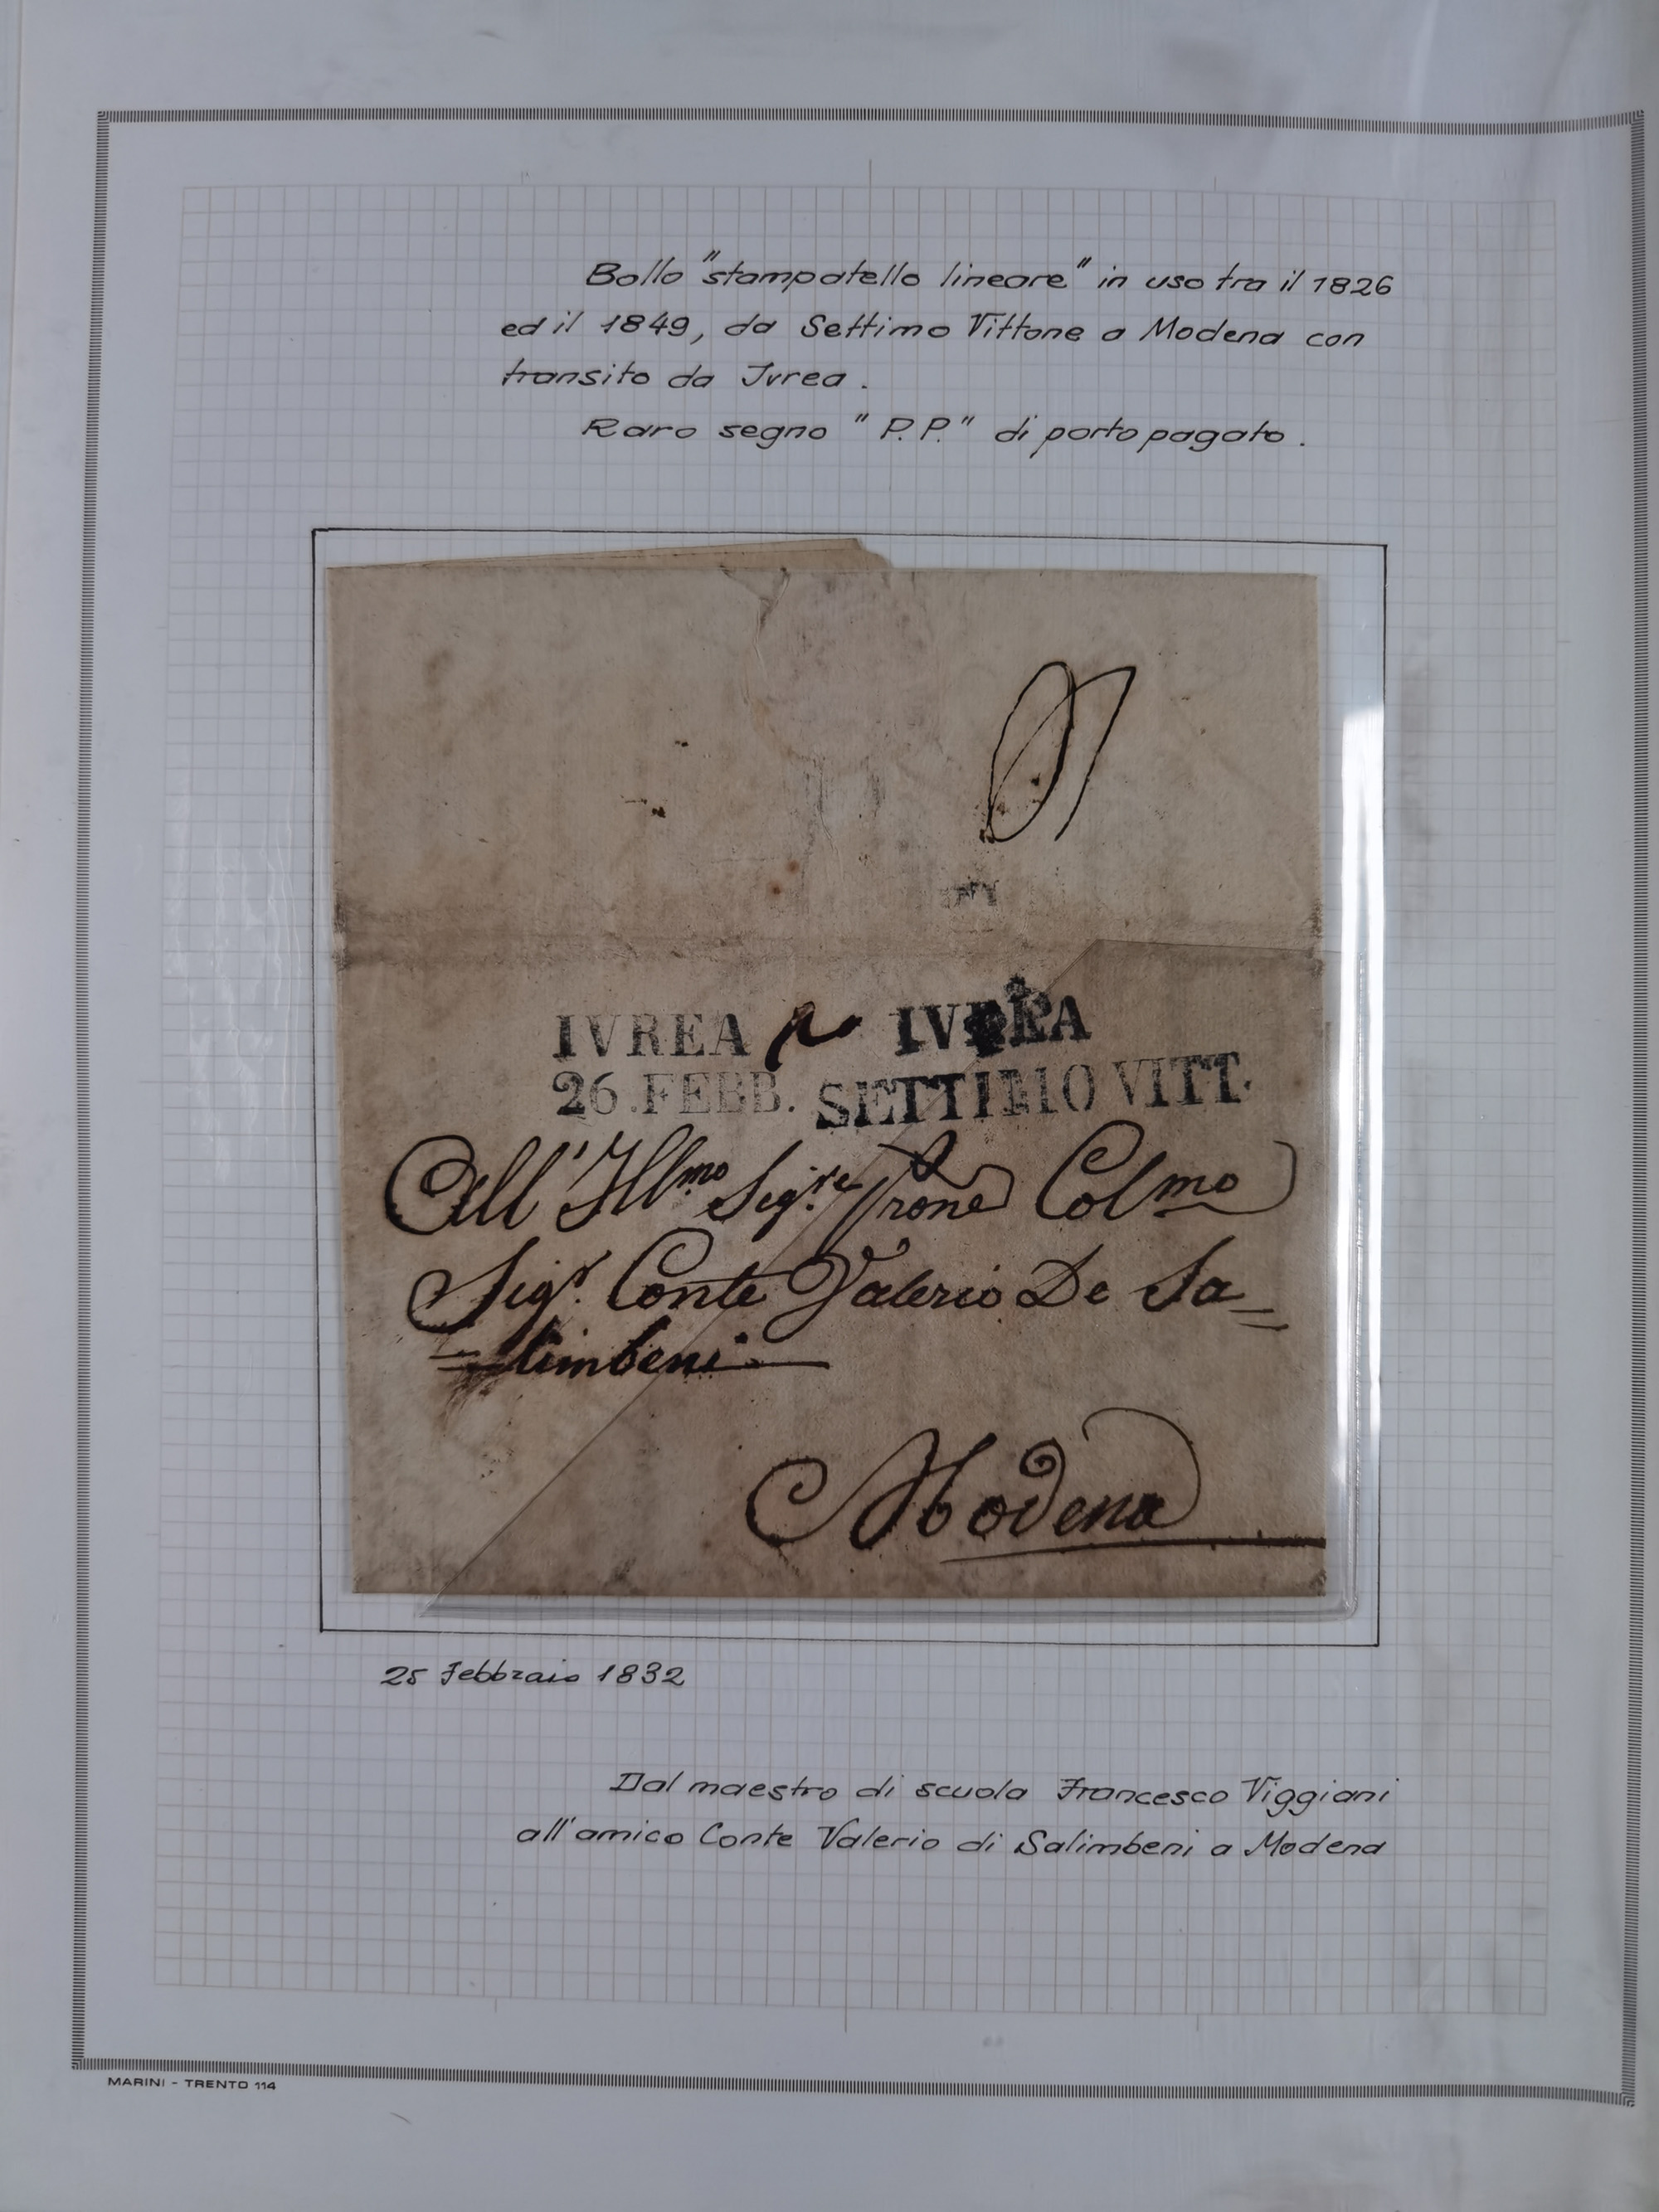 Bollo "stampatello lineare" in uso tra il 1826
ed il 1849, da Settimo Vittone a Modena con
transito da Ivrea.
Raro segno "P.P." di porto pagato.
IVREA IVREA
26.FEBB. SETTIMO VITT.
All'Ill.mo Sig.re Prone Colmo
Sig.r Conte Valerio De Sa=
=limbeni
Modena
25 Febbraio 1832
Dal maestro di scuola Francesco Viggiani
all'amico Conte Valerio di Salimbeni a Modena
MARINI - TRENTO 114